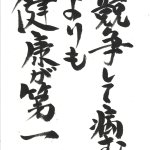 競争して病む
よりも
健康が第一